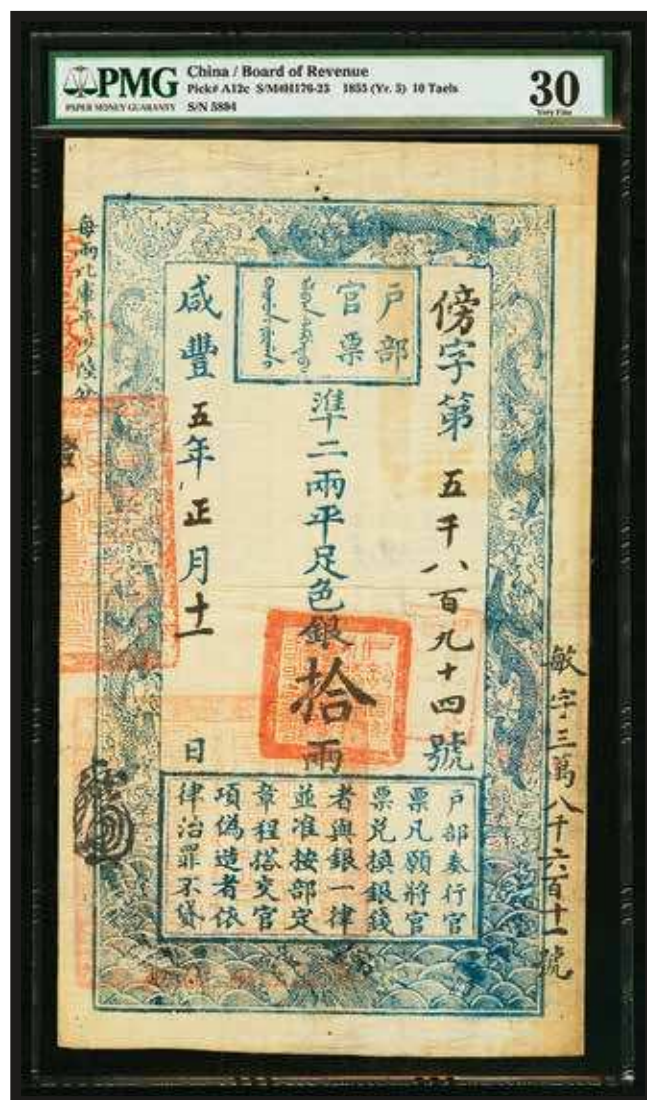 PMG
PAPER MONEY GUARANTY
China / Board of Revenue
Pick# A12c S/M#H176-25 1855 (Yr. 5) 10 Taels
S/N 5894
30
Very Fine
敏字三萬八千六百十一號
傍字第五千八百九十四號
户部
官票
準二兩平足色銀拾兩
咸豐五年正月十一日
每兩比庫平少陸分
户部奏行官
票凡願將官
票兑換銀錢
者與銀一律
並准按部定
章程搭交官
項偽造者依
律治罪不貸